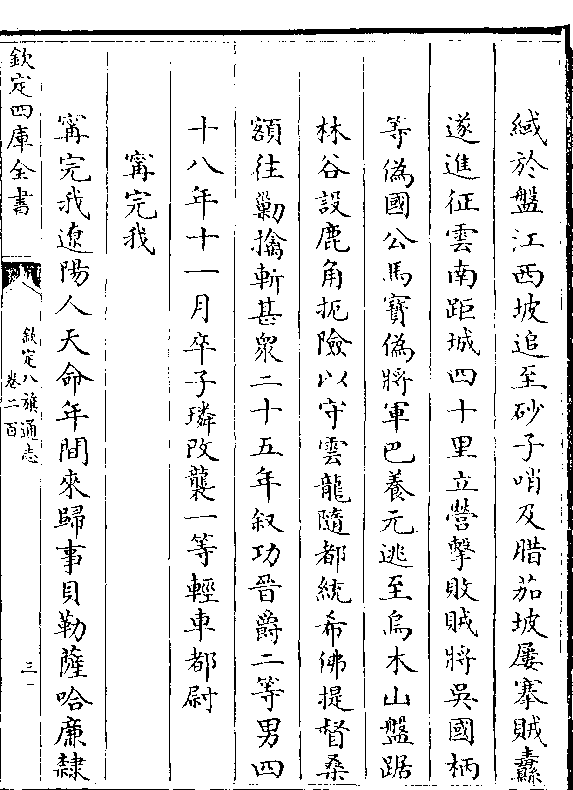 緎於盤江西坡追至砂子哨及腊茄坡屢搴賊纛
遂進征雲南距城四十里立營擊敗賊將吳國柄
等偽國公馬寳偽將軍巴養元逃至烏木山盤踞
林谷設鹿角扼險以守雲龍隨都統希佛提督桑
額往勦擒斬甚衆二十五年叙功晉爵二等男四
十八年十一月卒子璘改襲一等輕車都尉
寗完我
寗完我遼陽人天命年間來歸事貝勒薩哈廉隷
欽定四庫全書
欽定八旗通志
卷二百
三